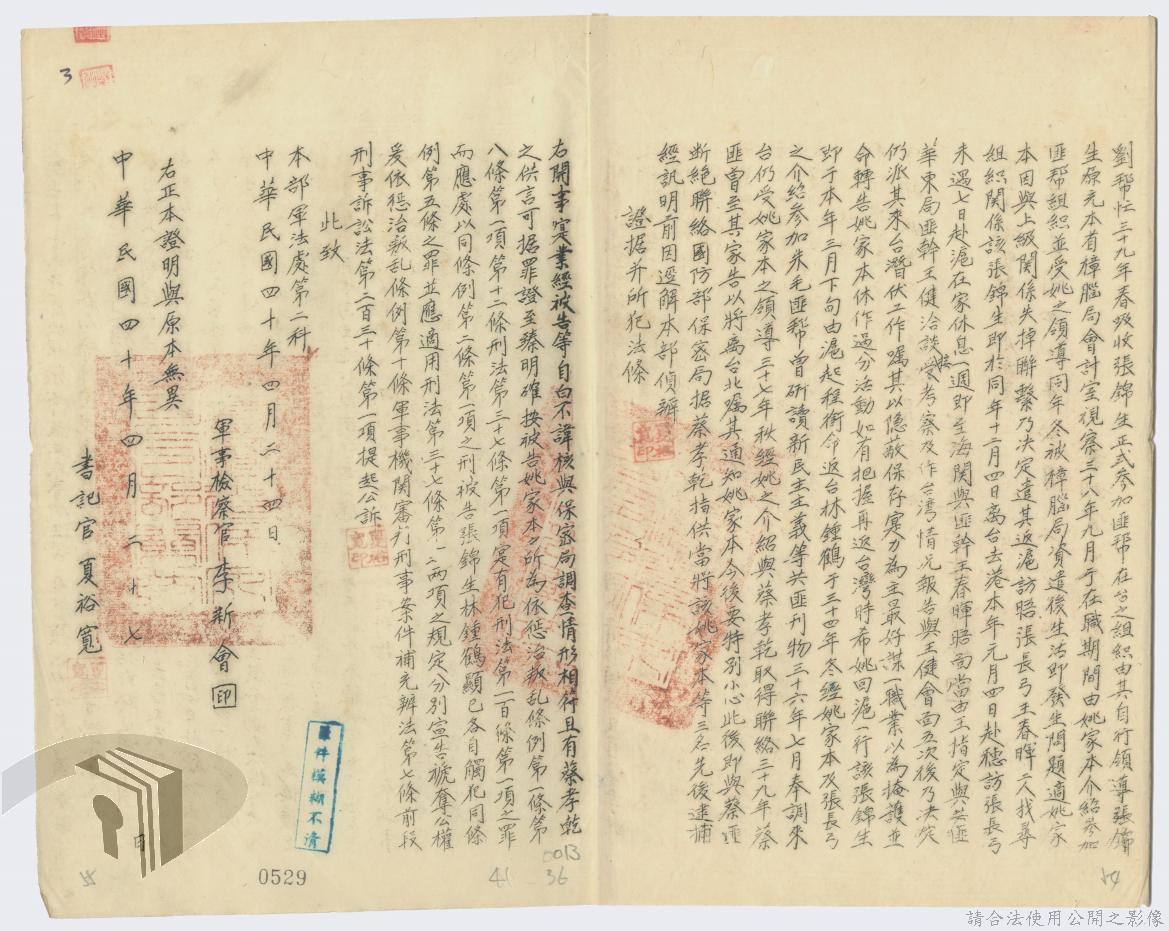 劉幫忙三十九年春吸收張錦生正式參加匪幫在台之組織由其自行領導張錦
生原充本省樟腦局會計室視察三十八年九月于在職期間由姚家本介紹參加
匪幫組織並受姚之領導同年冬被樟腦局資遣後生活即發生問題適姚家
本因與上級関係失掉聯繫乃決定遣其返滬訪晤張長弓王春暉二人找尋
組織関係該張錦生即於同年十二月四日离台去港本年元月四日赴穗訪張長弓
未遇七日赴滬在家休息一週即至海関與匪幹王春暉晤面當由王指定與共匪
華東局匪幹王健洽談受考察及作台湾情况報告與王健會面五次後乃決定
仍派其來台潛伏工作囑其以隐蔽保存实力為主最好謀一職業以為掩護並
命轉告姚家本休作過分活動如有把握再返台灣時布姚回滬行該張錦生
即于本年三月下旬由滬起程銜命返台林鍾鶴于三十四年冬經姚家本及張長弓
之介紹參加朱毛匪幫曾研讀新民主主義等共匪刊物三十六年七月奉調來
台仍受姚家本之領導三十七年秋經姚之介紹與蔡孝乾取得聯絡三十九年蔡
匪曾至其家告以將离台北囑其通知姚家本今後要特別小心此後即與蔡匪
断絕聯絡國防部保密局据蔡孝乾指供當將該姚家本等三名先後逮捕
經訊明前因逕解本部偵辦
證据并所犯法條
右開事实業經被告等自白不諱核與保密局調查情形相符且有蔡孝乾
之供言可据罪證至臻明確按被告姚家本之所為依惩治叛乱條例第一條第
八條第一項第十二條刑法第三十七條第一項实有犯刑法第一百條第一項之罪
而應處以同條例第二條第一項之刑被告張錦生林鍾鶴顯已各自觸犯同條
例第五條之罪並應適用刑法第三十七條第一二兩項之規定分別宣告褫奪公權
爰依惩治叛乱條例第十條軍事機関審判刑事案件補充辦法第七條前段
刑事訴訟法第二百三十條第一項提起公訴
此致
本部軍法處第二科
中華民國四十年四月二十四日
軍事檢察官李新會 印
右正本證明與原本無異
書記官夏裕寬
中華民國四十年四月二十七日
3
原件模糊不清
0529
41
0013
36
54
請合法使用公開之影像